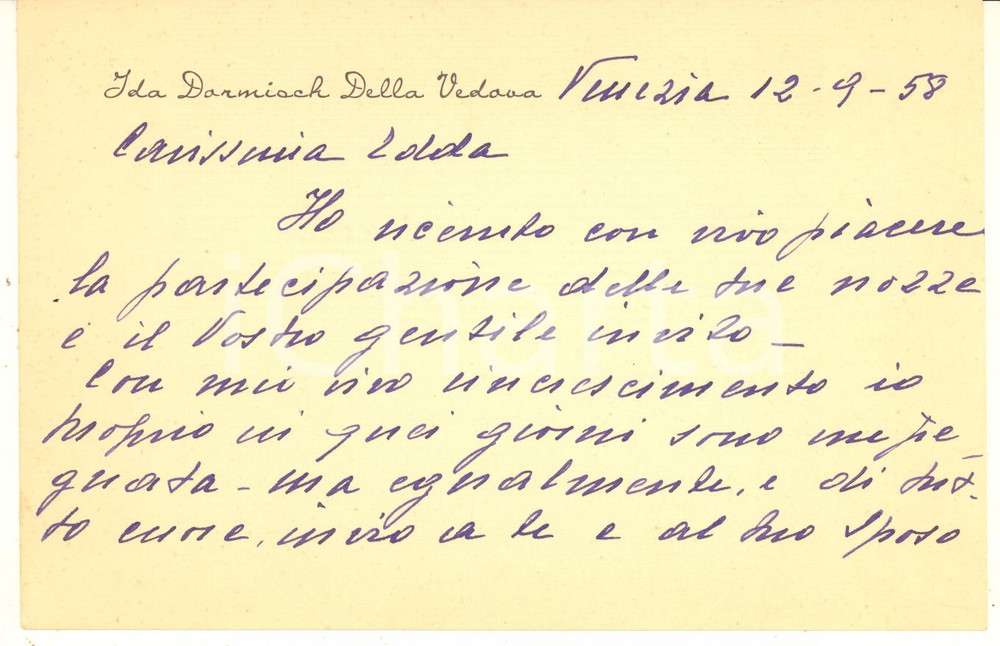 Ida Dormisch Della Vedova Venezia 12-9-58
Carissima Edda
Ho ricevuto con vivo piacere
la partecipazione delle tue nozze
e il Vostro gentile invito -
Con mio vivo rincrescimento io
proprio in quei giorni sono impe-
gnata - ma egualmente, e di tut-
to cuore, invio a te e al tuo Sposo
iCharta